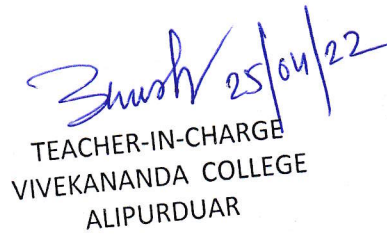 25/04/22
TEACHER-IN-CHARGE
VIVEKANANDA COLLEGE
ALIPURDUAR